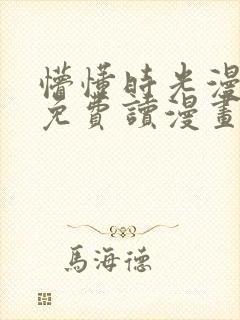 懵懂時光漫
免費讀漫畫
馬海德